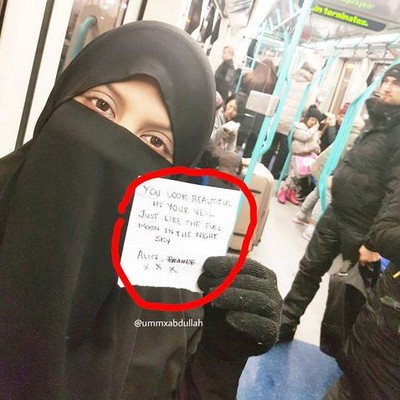 in terminates.
YOU LOOK BEAUTIFUL
IN YOUR VEIL
JUST LIKE THE FULL
MOON IN THE NIGHT
SKY
ALICE,
x x x
@ummxabdullah